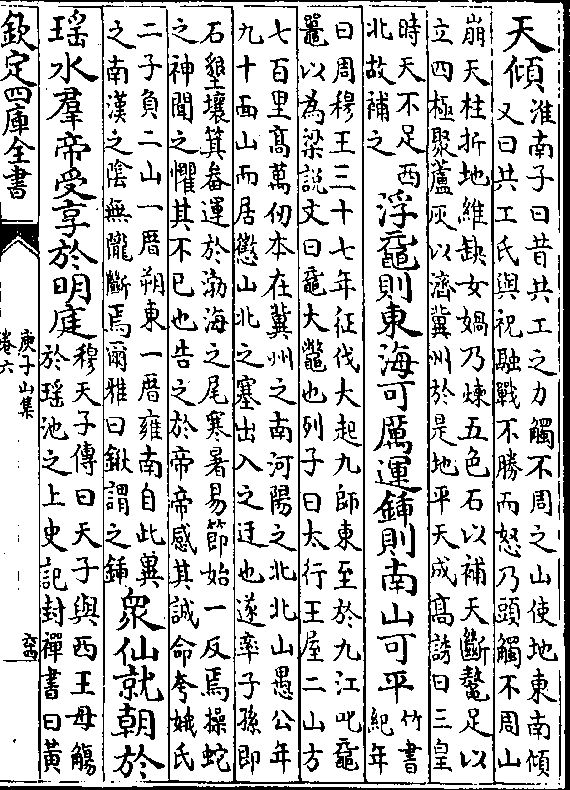 天傾淮南子曰昔共工之力觸不周之山使地東南傾
又曰共工氏與祝融戰不勝而怒乃頭觸不周山
崩天柱折地維缺女媧乃煉五色石以補天斷鼇足以
立四極聚蘆灰以濟冀州於是地平天成髙誘曰三皇
時天不足西
北故補之
浮黿則東海可厲運鍤則南山可平竹書
紀年
曰周穆王三十七年征伐大起九師東至於九江叱黿
鼉以為梁說文曰黿大鼈也列子曰太行王屋二山方
七百里髙萬仞本在冀州之南河陽之北北山愚公年
九十面山而居懲山北之塞出入之迂也遂率子孫即
石墾壤箕畚運於渤海之尾寒暑易節始一反焉操蛇
之神聞之懼其不已也告之於帝帝感其誠命夸娥氏
二子負二山一厝朔東一厝雍南自此冀
之南漢之陰無隴斷焉爾雅曰鍬謂之鍤
衆仙就朝於
瑶水羣帝受享於明庭穆天子傳曰天子與西王母觴
於瑶池之上史記封禪書曰黄
欽定四庫全書
庾子山集
卷六